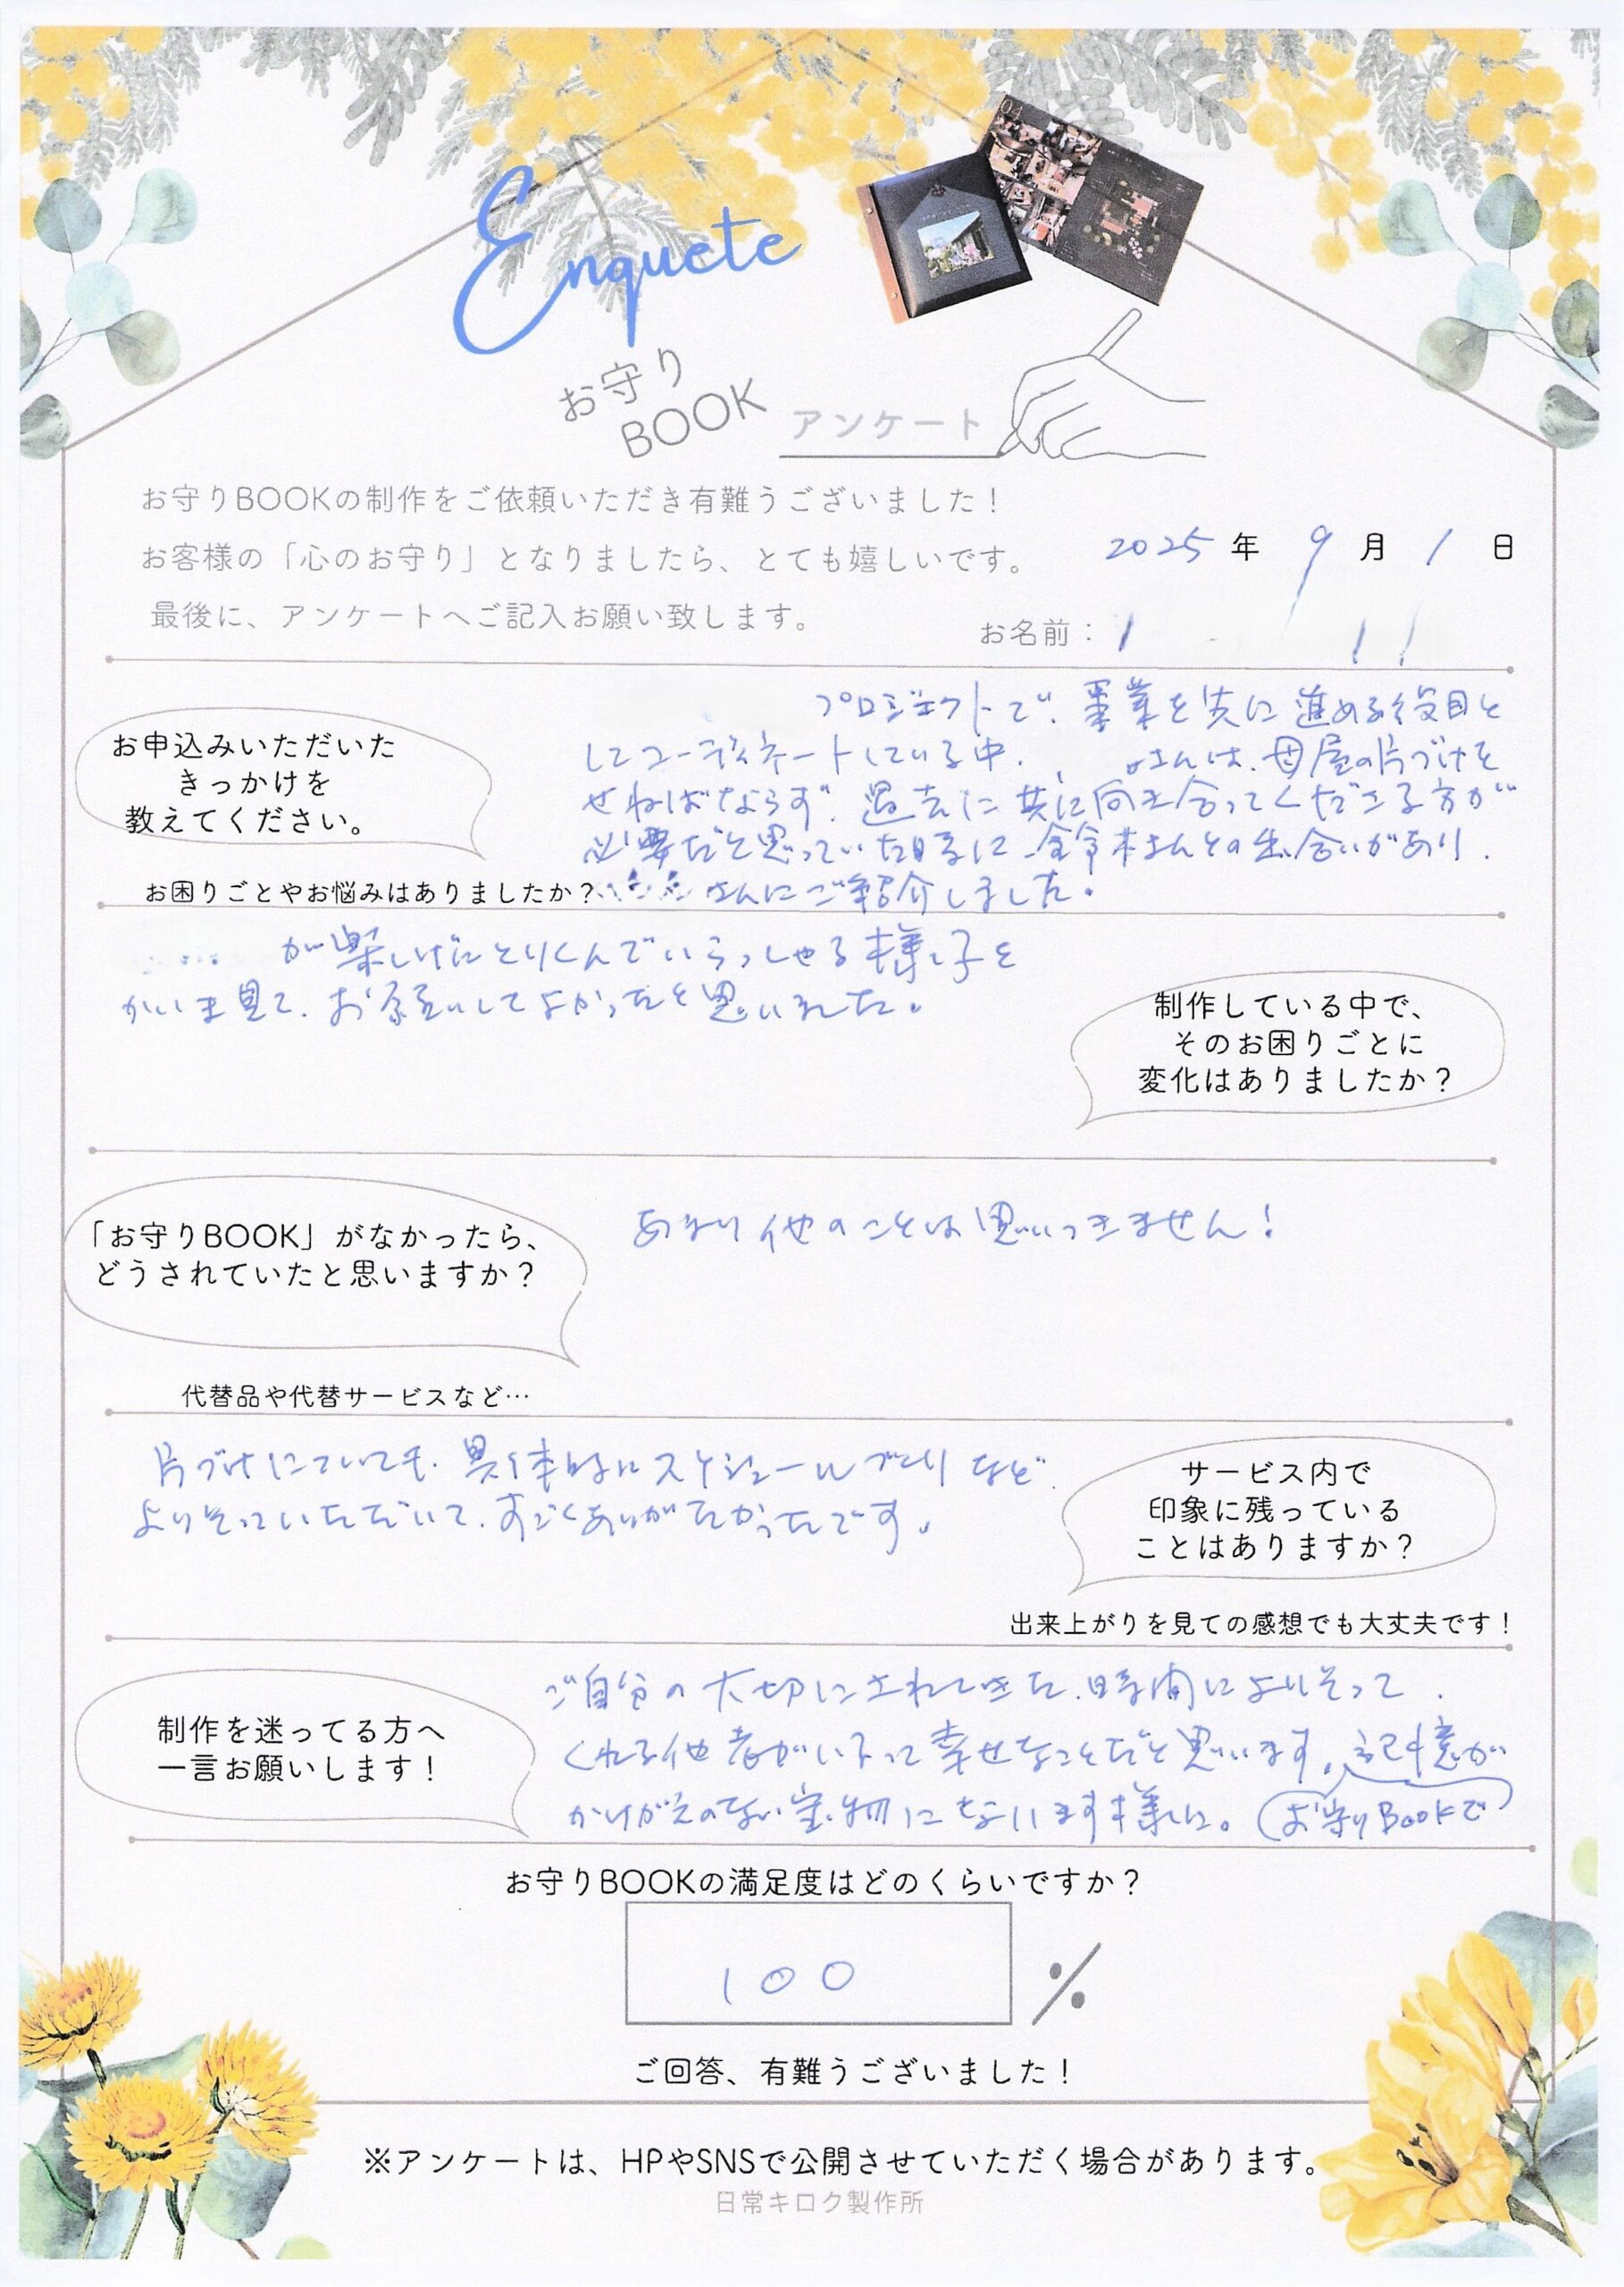 Enquete
お守り
BOOK
アンケート
お守りBOOKの制作をご依頼いただき有難うございました！
お客様の「心のお守り」となりましたら、とても嬉しいです。
最後に、アンケートへご記入お願い致します。
2025年 9月 1日
お名前：
お申込みいただいた
きっかけを
教えてください。
お困りごとやお悩みはありましたか？
プロジェクトで、事業を先に進める役目と
してコーディネートしている中、
さんは、母屋の片づけを
せねばならず、過去に共に向き合ってくださる方が
必要だと思っていた時に、鈴木さんとの出会いがあり、
さんにご紹介しました。
制作している中で、
そのお困りごとに
変化はありましたか？
が楽しげにとりくんでいらっしゃる様子を
かいま見て、お願いしてよかったと思いました。
「お守りBOOK」がなかったら、
どうされていたと思いますか？
代替品や代替サービスなど…
あまり他のことは思いつきません！
サービス内で
印象に残っている
ことはありますか？
出来上がりを見ての感想でも大丈夫です！
片づけについても、具体的にスケジュールづくりなど
よりそっていただいて、すごくありがたかったです。
制作を迷ってる方へ
一言お願いします！
ご自分の大切にされてきた、時間によりそって
くれる他者がいるって幸せなことだと思います。記憶が
かけがえのない宝物になります様に。（お守りBOOKで
お守りBOOKの満足度はどのくらいですか？
100 %
ご回答、有難うございました！
※アンケートは、HPやSNSで公開させていただく場合があります。
日常キロク製作所